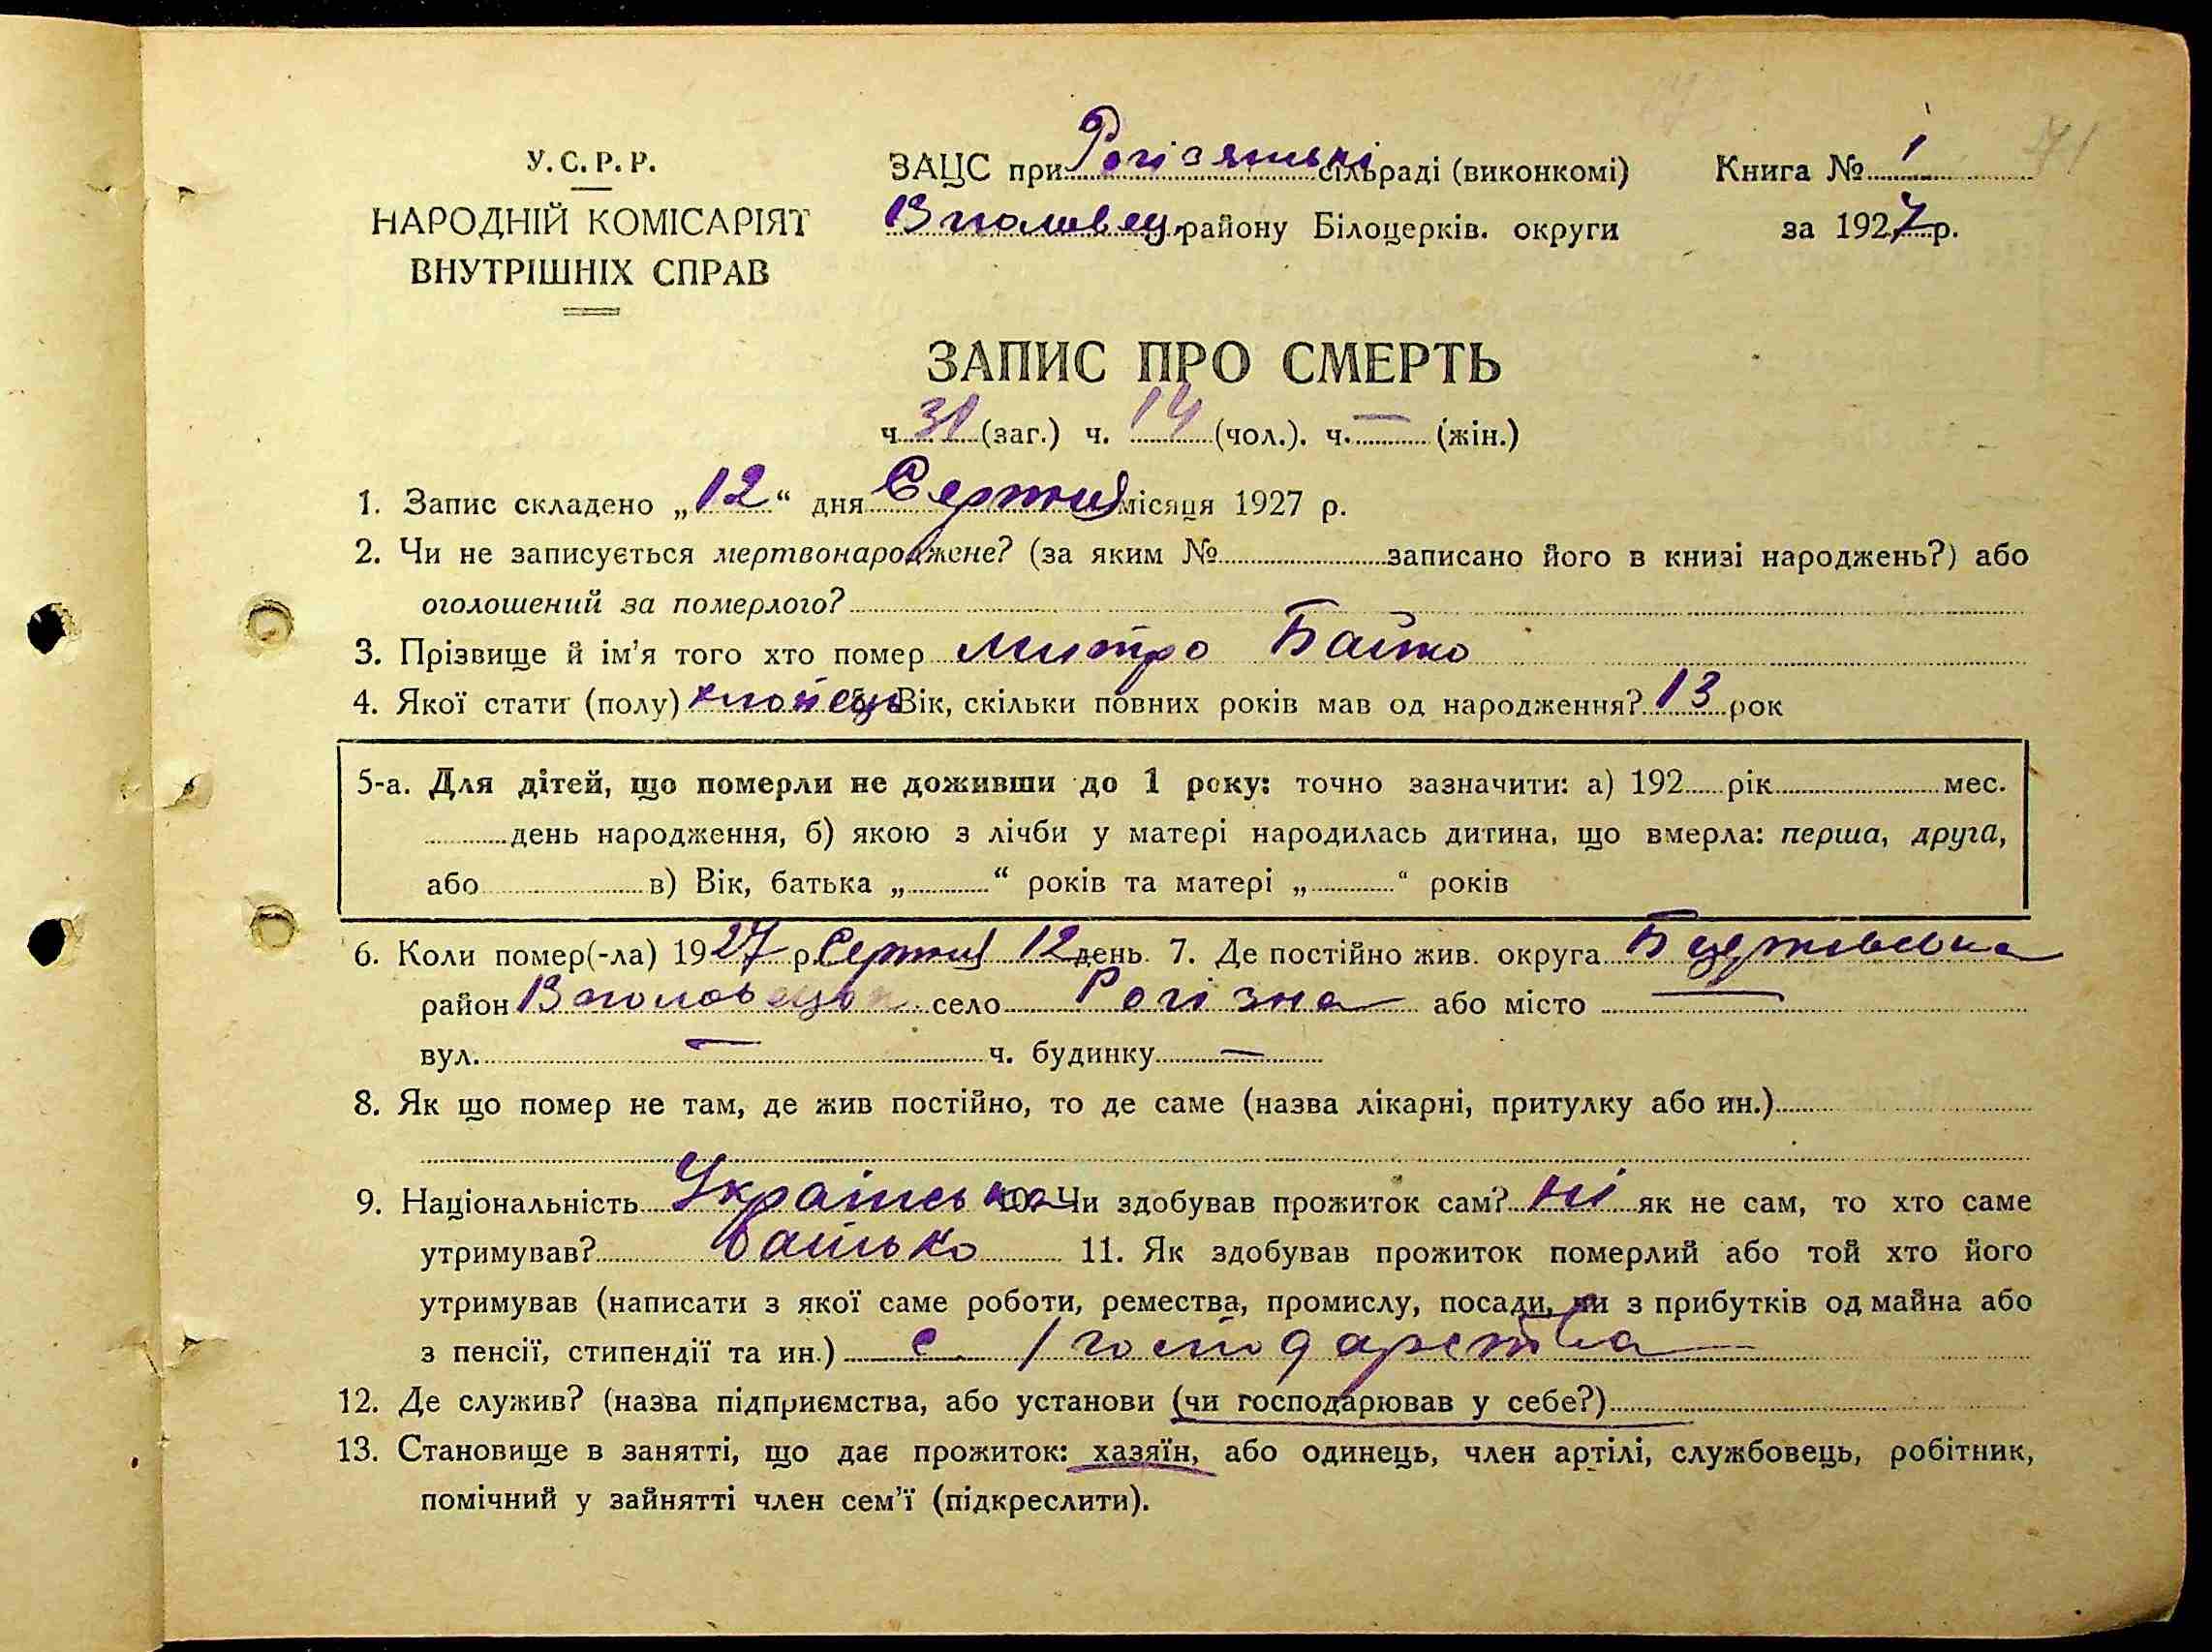 У.С.Р.Р.
НАРОДНІЙ КОМІСАРІЯТ
ВНУТРІШНІХ СПРАВ
ЗАЦС при Рогізянські сільраді (виконкомі)
района Білоцерків. округи
Книга № 1
за 1927 р.
71
ЗАПИС ПРО СМЕРТЬ
ч. 31 (заг.) ч. 14 (чол.). ч. — (жін.)
1. Запис складено „12“ дня Серпня місяця 1927 р.
2. Чи не записується мертвонароджене? (за яким № записано його в книзі народжень?) або
оголошений за померлого?
3. Прізвище й ім'я того хто помер Митро
4. Якої стати (полу) хлопець 5. Вік, скільки повних років мав од народження? 13 рок
5-а. Для дітей, що померли не доживши до 1 року: точно зазначити: а) 192 рік мес.
день народження, б) якою з лічби у матері народилась дитина, що вмерла: перша, друга,
або в) Вік, батька „ “ років та матері „ “ років
6. Коли помер(-ла) 1927 р. Серпня 12 день. 7. Де постійно жив. округа
район село Рогізна або місто —
вул. — ч. будинку —
8. Як що помер не там, де жив постійно, то де саме (назва лікарні, притулку або ин.)
9. Національність Українська 10. Чи здобував прожиток сам? Ні як не сам, то хто саме
утримував? батько 11. Як здобував прожиток померлий або той хто його
утримував (написати з якої саме роботи, ремества, промислу, посади, чи з прибутків од майна або
з пенсії, стипендії та ин.) с / господарства
12. Де служив? (назва підприємства, або установи (чи господарював у себе?)
13. Становище в занятті, що дає прожиток: хазяїн, або одинець, член артілі, службовець, робітник,
помічний у зайнятті член сем'ї (підкреслити).